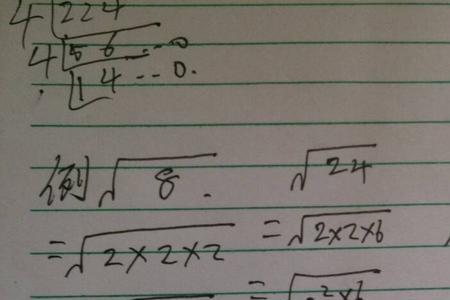 4 224
4 56 -- 0
14 -- 0.
例 √8 . √24
= √2×2×2 = √2×2×6
= √2²×6